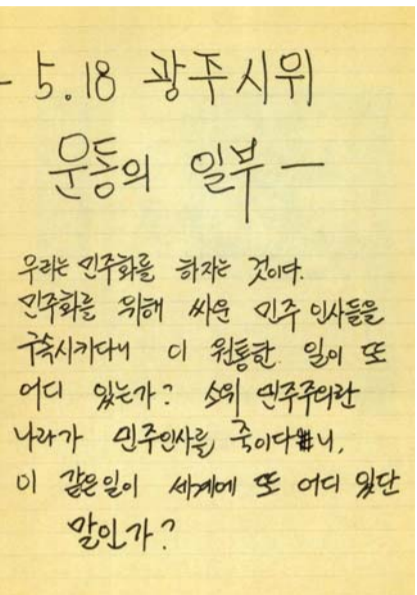 - 5.18 광주시위
운동의 일부 -
우리는 민주화를 하자는 것이다.
민주화를 위해 싸운 민주 인사들을
구속시키다니 이 원통한 일이 또
어디 있는가? 소위 민주주의란
나라가 민주인사를 죽이다니,
이 같은일이 세계에 또 어디 있단
말인가?